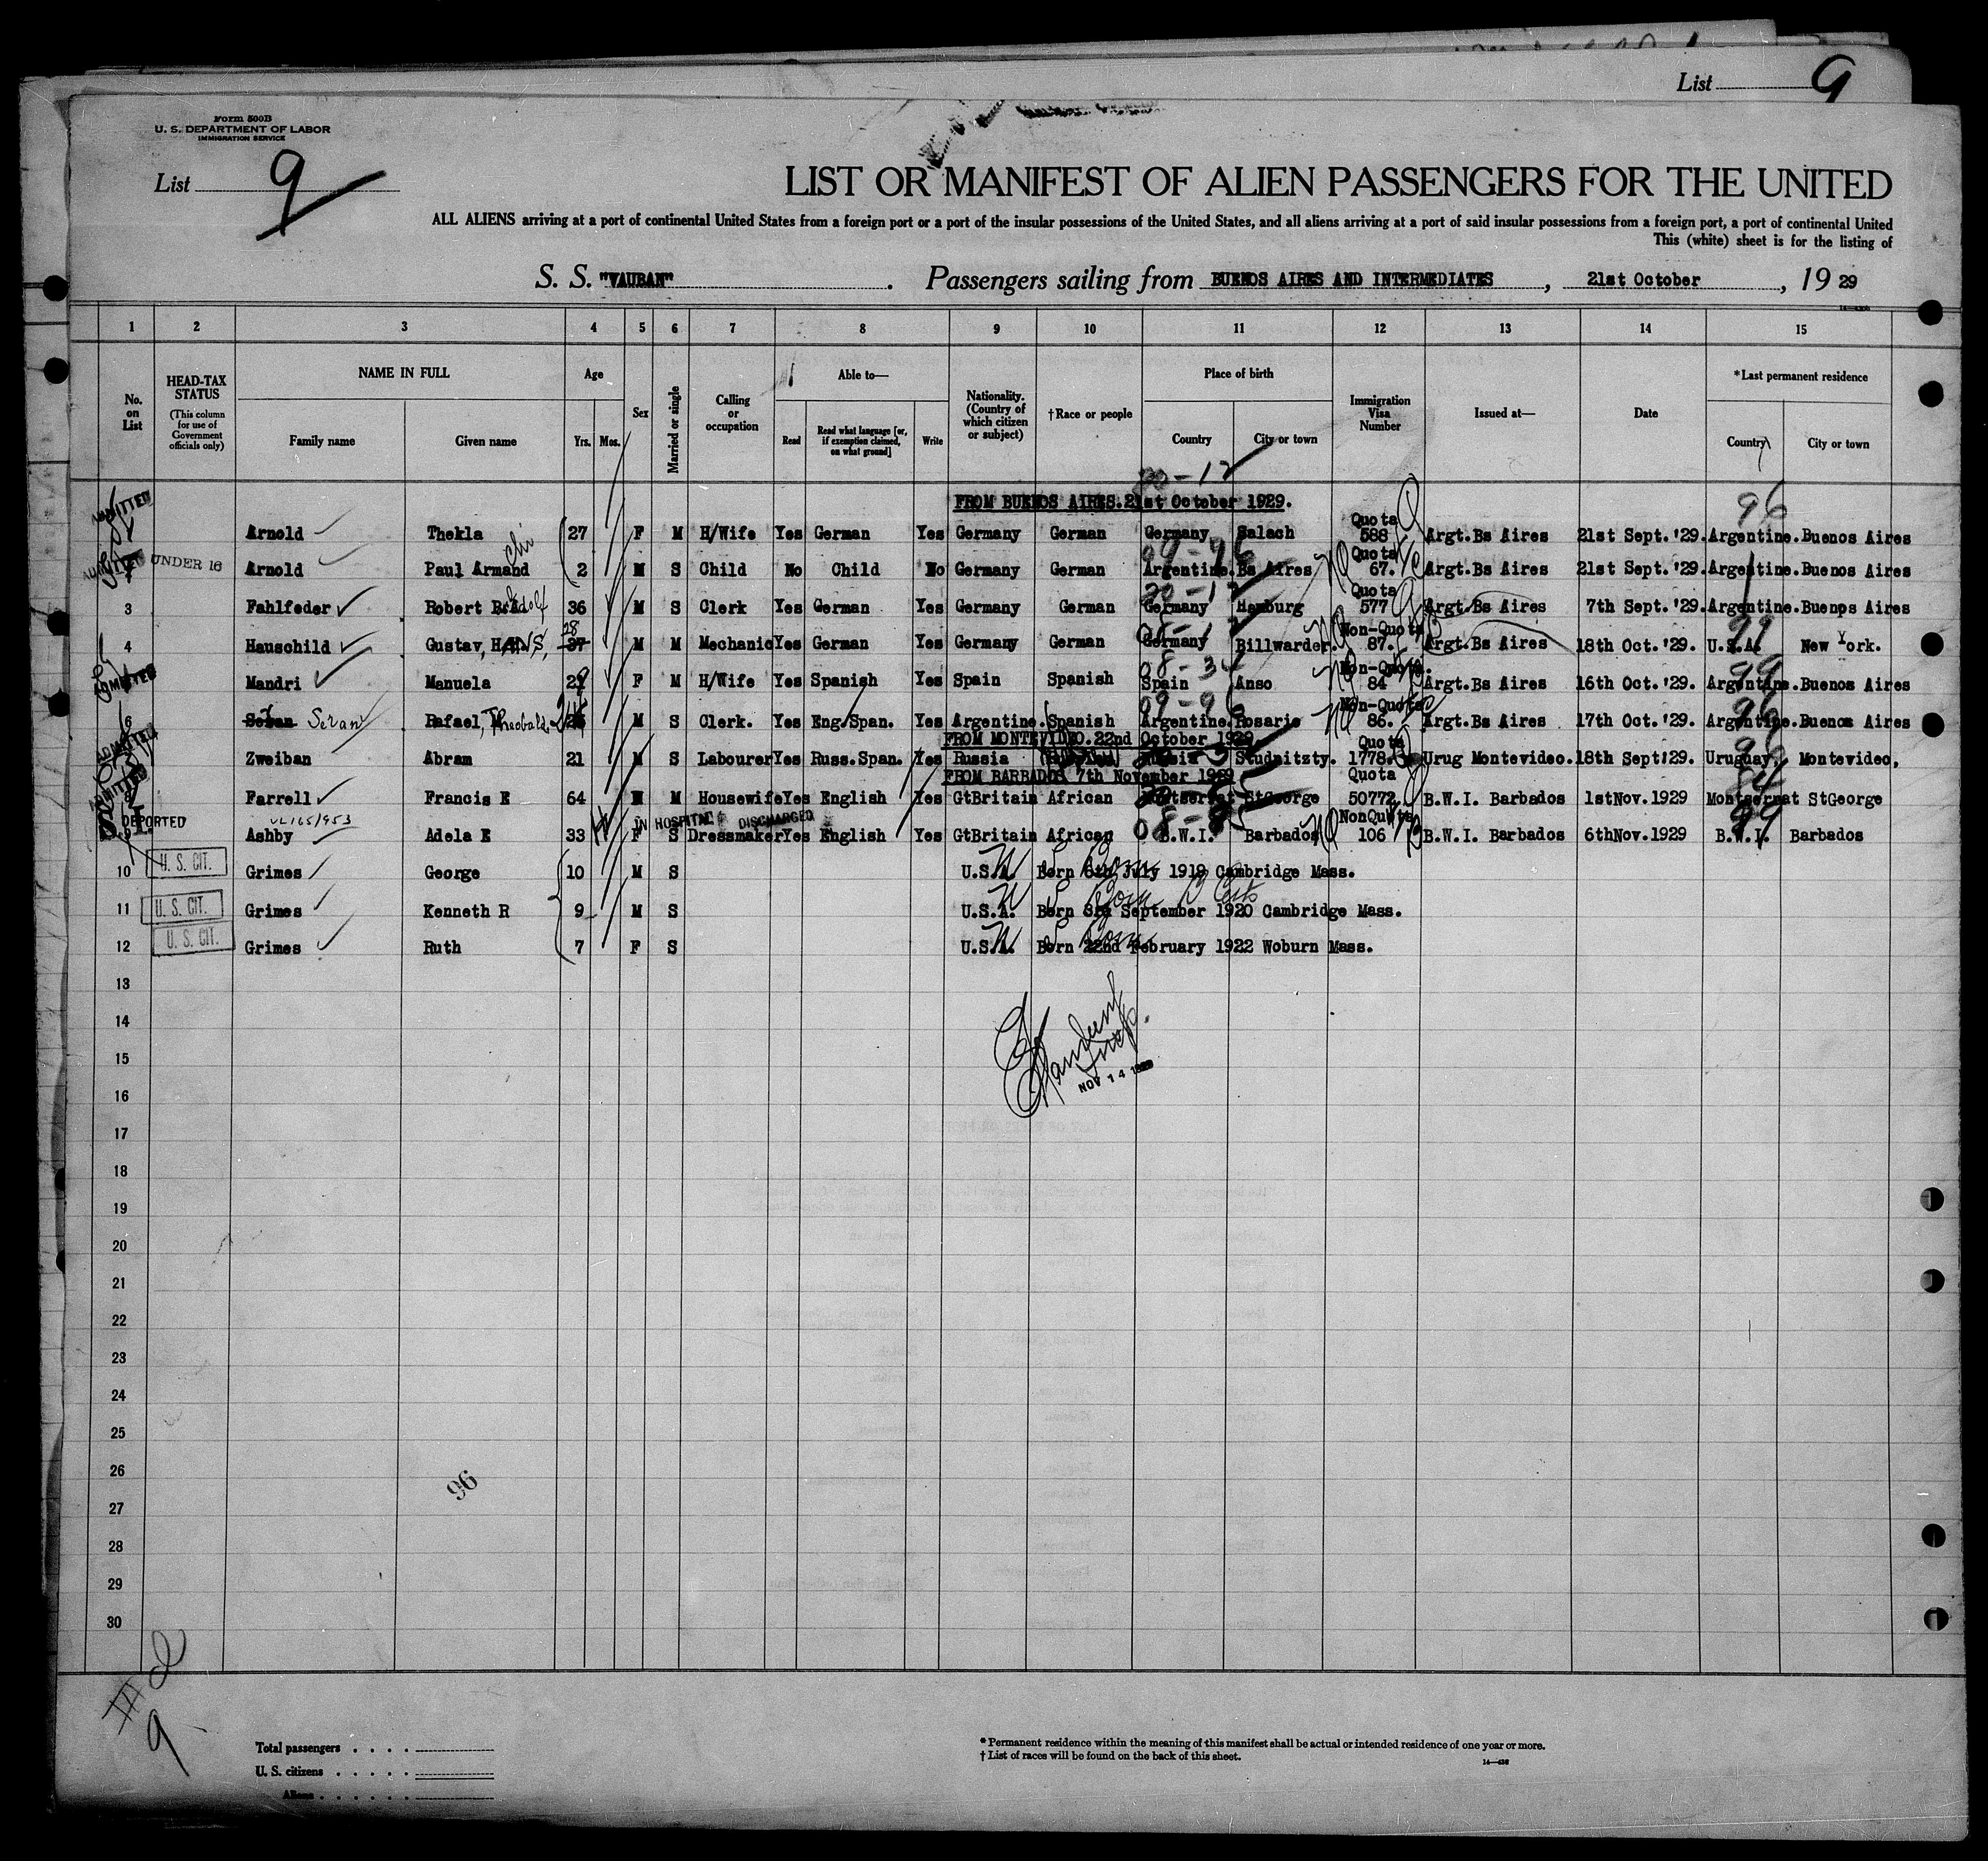 List 9
Form 500B
U. S. DEPARTMENT OF LABOR
IMMIGRATION SERVICE
List 9
LIST OR MANIFEST OF ALIEN PASSENGERS FOR THE UNITED
ALL ALIENS arriving at a port of continental United States from a foreign port or a port of the insular possessions of the United States, and all aliens arriving at a port of said insular possessions from a foreign port, a port of continental United
This (white) sheet is for the listing of
S. S. "VAUBAN" . Passengers sailing from BUENOS AIRES AND INTERMEDIATES , 21st October , 19 29
1 2 3 4 5 6 7 8 9 10 11 12 13 14 15
No. on List
HEAD-TAX STATUS (This column for use of Government officials only)
NAME IN FULL
Family name Given name
Age
Yrs. Mos.
Sex
Married or single
Calling or occupation
Able to—
Read Read what language [or, if exemption claimed, on what ground] Write
Nationality. (Country of which citizen or subject)
†Race or people
Place of birth
Country City or town
Immigration Visa Number
Issued at—
Date
*Last permanent residence
Country City or town
20-12
FROM BUENOS AIRES.21st October 1929.
96
ADMITTED Arnold Thekla 27 F M H/Wife Yes German Yes Germany German Germany Salach Quota 588 Argt.Bs Aires 21st Sept.'29. Argentine. Buenos Aires
UNDER 16 Arnold Paul Armand 2 M S Child No Child No Germany German Argentine. Bs Aires Quota 67. Argt.Bs Aires 21st Sept.'29. Argentine. Buenos Aires
3 Fahlfeder Robert 36 M S Clerk Yes German Yes Germany German Germany Hamburg Quota 577 Argt.Bs Aires 7th Sept.'29. Argentine. Buenos Aires
4 Hauschild Gustav, HANS, 37 28 M M Mechanic Yes German Yes Germany German Germany Billwarder. Non-Quota 87. Argt.Bs Aires 18th Oct.'29. U.S.A. New York.
ADMITTED Mandri Manuela F M H/Wife Yes Spanish Yes Spain Spanish Spain Anso Non-Quota. 84 Argt.Bs Aires 16th Oct.'29. Argentine. Buenos Aires
6 Seran Rafael, Theobaldo M S Clerk. Yes Eng.Span. Yes Argentine. Spanish Argentine. Rosario Non-Quota 86. Argt.Bs Aires 17th Oct.'29. Argentine. Buenos Aires
FROM MONTEVIDEO. 22nd October 1929
ADMITTED Zweiban Abram 21 M S Labourer Yes Russ.Span. Yes Russia Russia Studnitzty. Quota 1778. Urug Montevideo. 18th Sept:29. Uruguay, Montevideo,
FROM BARBADOS 7th November 1929
ADMITTED Farrell Francis E 64 M Housewife Yes English Yes GtBritain African Montserrat StGeorge Quota 50772 B.W.I. Barbados 1stNov.1929 Montserrat StGeorge
VL165/953
IN HOSPITAL DISCHARGED
DEPORTED 9 Ashby Adela E 33 F S Dressmaker Yes English Yes GtBritain African B.W.I. Barbados NonQuota 106 B.W.I. Barbados 6thNov.1929 B.W.I. Barbados
10 U. S. CIT. Grimes George 10 M S U.S.A. Born 6th July 1919 Cambridge Mass.
11 U. S. CIT. Grimes Kenneth R 9 M S U.S.A. Born 3rd September 1920 Cambridge Mass.
12 U. S. CIT. Grimes Ruth 7 F S U.S.A. Born 22nd February 1922 Woburn Mass.
13
14
15
NOV 14 1929
16
17
18
19
20
21
22
23
24
25
26
96
27
28
29
30
9
Total passengers . . . .
U. S. citizens . . . . .
Aliens . . . . . .
* Permanent residence within the meaning of this manifest shall be actual or intended residence of one year or more.
† List of races will be found on the back of this sheet.